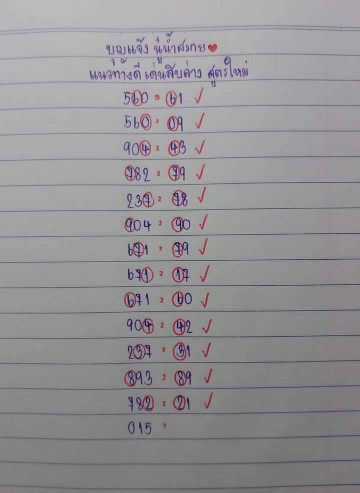 บุญแจ้ง นู๋น้ำสมาย ❤
แนวทางดี เด่นสิบล่าง สูตรใหม่
560 = 61 ✓
560 = 09 ✓
904 = 43 ✓
782 = 79 ✓
237 = 78 ✓
904 = 90 ✓
671 = 79 ✓
671 = 17 ✓
671 = 60 ✓
904 = 42 ✓
237 = 31 ✓
893 = 89 ✓
782 = 21 ✓
015 =